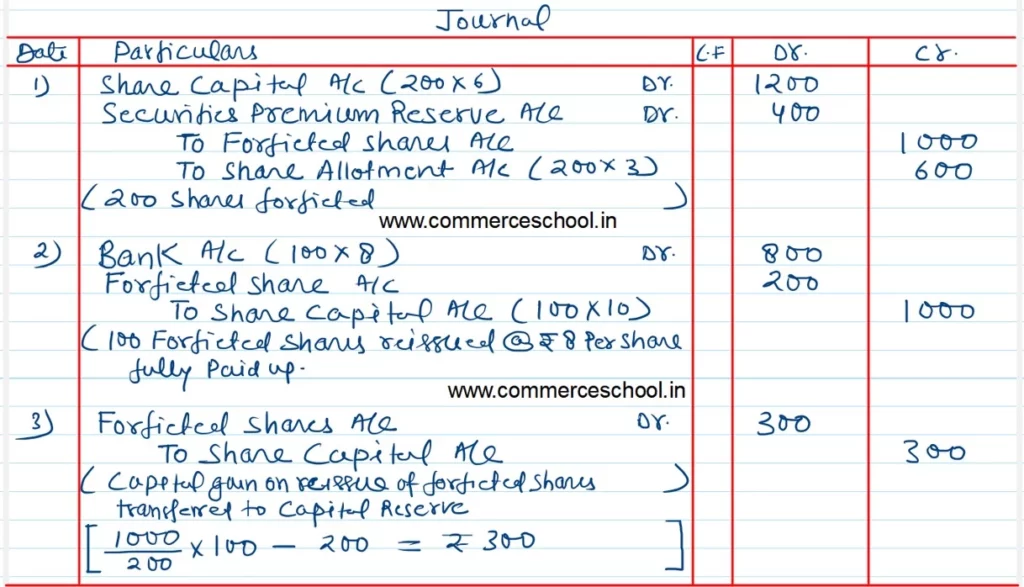 Journal
Date Particulars L.F Dr. Cr.
1) Share Capital A/c (200 x 6) Dr. 1200
Securities Premium Reserve A/c Dr. 400
To Forficted shares A/c 1000
To Share Allotment A/c (200 x 3) 600
(200 Shares forficted )
www.commerceschool.in
2) Bank A/c (100 x 8) Dr. 800
Forficted Share A/c 200
To Share Capital A/c (100 x 10) 1000
(100 Forficted Shares reissued @ ₹ 8 Per share
fully Paid up.
www.commerceschool.in
3) Forficted Shares A/c Dr. 300
To Share Capital A/c 300
(Capital gain on reissue of forficted shares )
transferred to Capital Reserve
[1000/200 x 100 - 200 = ₹ 300 ]